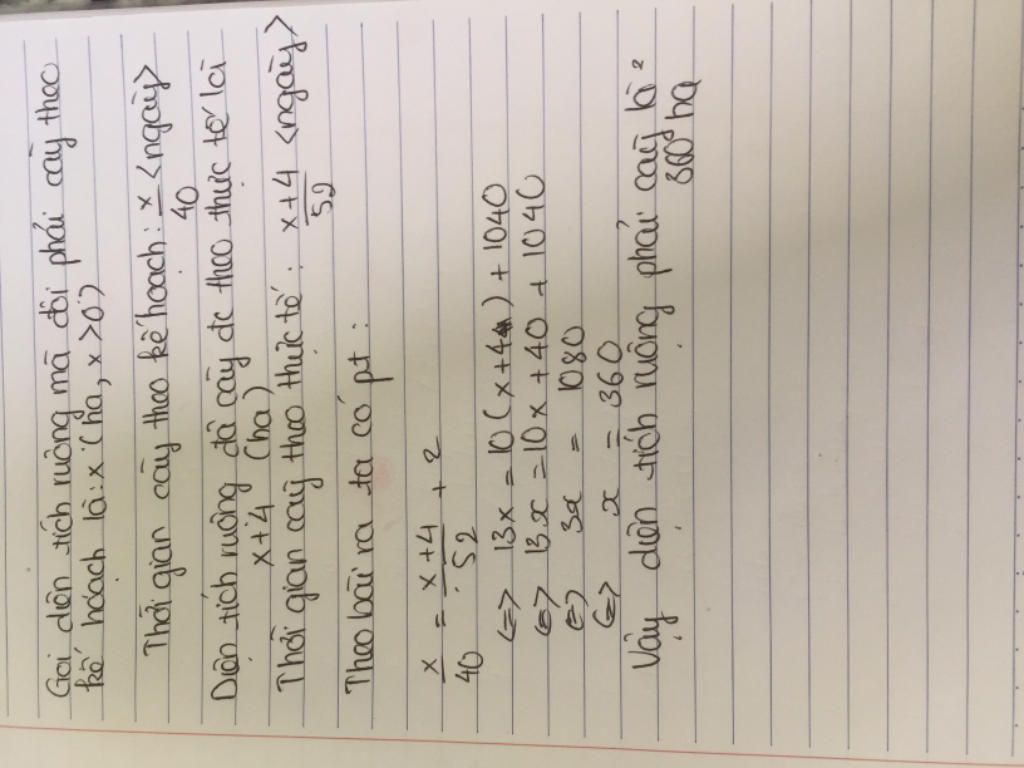 Gọi diện tích ruộng mà đội phải cày theo
kế hoạch là: x (ha, x > 0)
Thời gian cày theo kế hoạch: x/40 <ngày>
Diện tích ruộng đã cày đc theo thực tế là
x+4 (ha)
Thời gian cày theo thực tế: x+4/52 <ngày>
Theo bài ra ta có pt:
x/40 = x+4/52 + 2
<=> 13x = 10(x+4) + 1040
<=> 13x = 10x + 40 + 1040
<=> 3x = 1080
<=> x = 360
Vậy diện tích ruộng phải cày là
360 ha